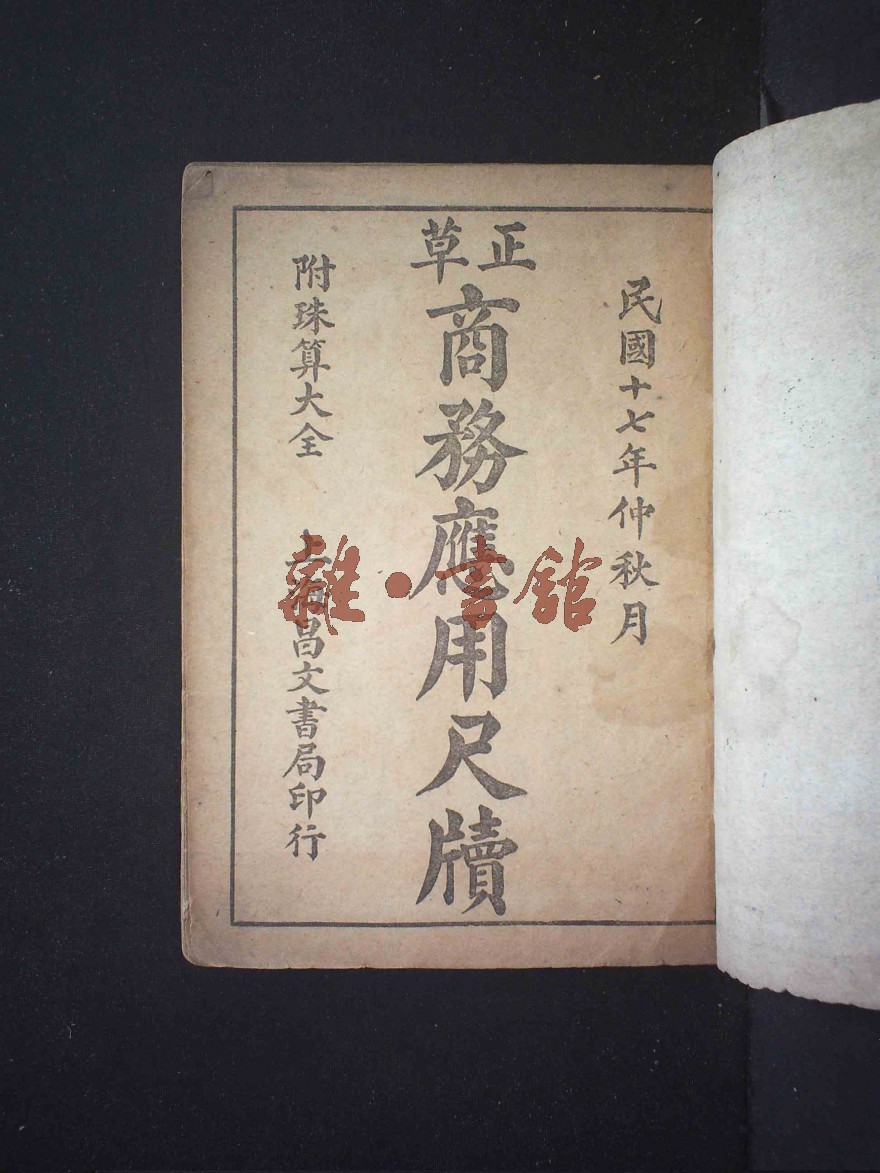 民國十七年仲秋月
正草
商務應用尺牘
附珠算大全
上海昌文書局印行
雜·書館